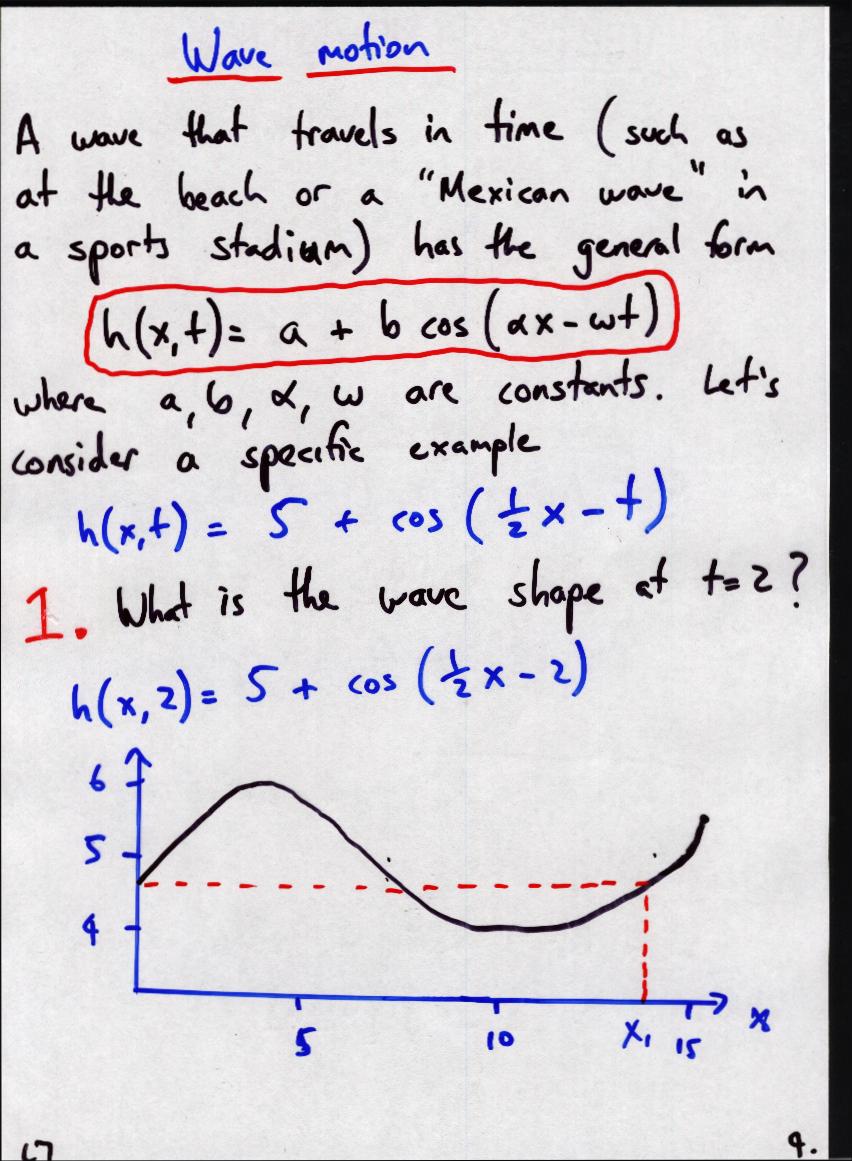 Wave motion
A wave that travels in time (such as
at the beach or a "Mexican wave" in
a sports stadium) has the general form
h(x,t) = a + b cos(αx - ωt)
where a, b, α, ω are constants. Let's
consider a specific example
h(x,t) = 5 + cos(½x - t)
1. What is the wave shape at t=2?
h(x,2) = 5 + cos(½x - 2)
6
5
4
5 10 x₁ 15 x
9.